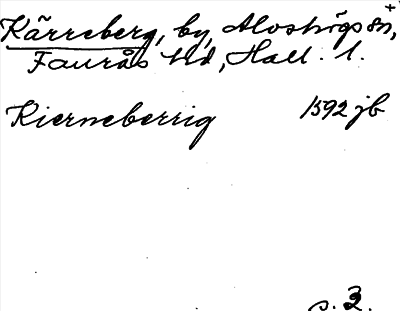 Kärreberg, by, Alvshögs sn, +
Faurås hd, Hall. l.
Kierneberrig 1592 jb
s. 3.